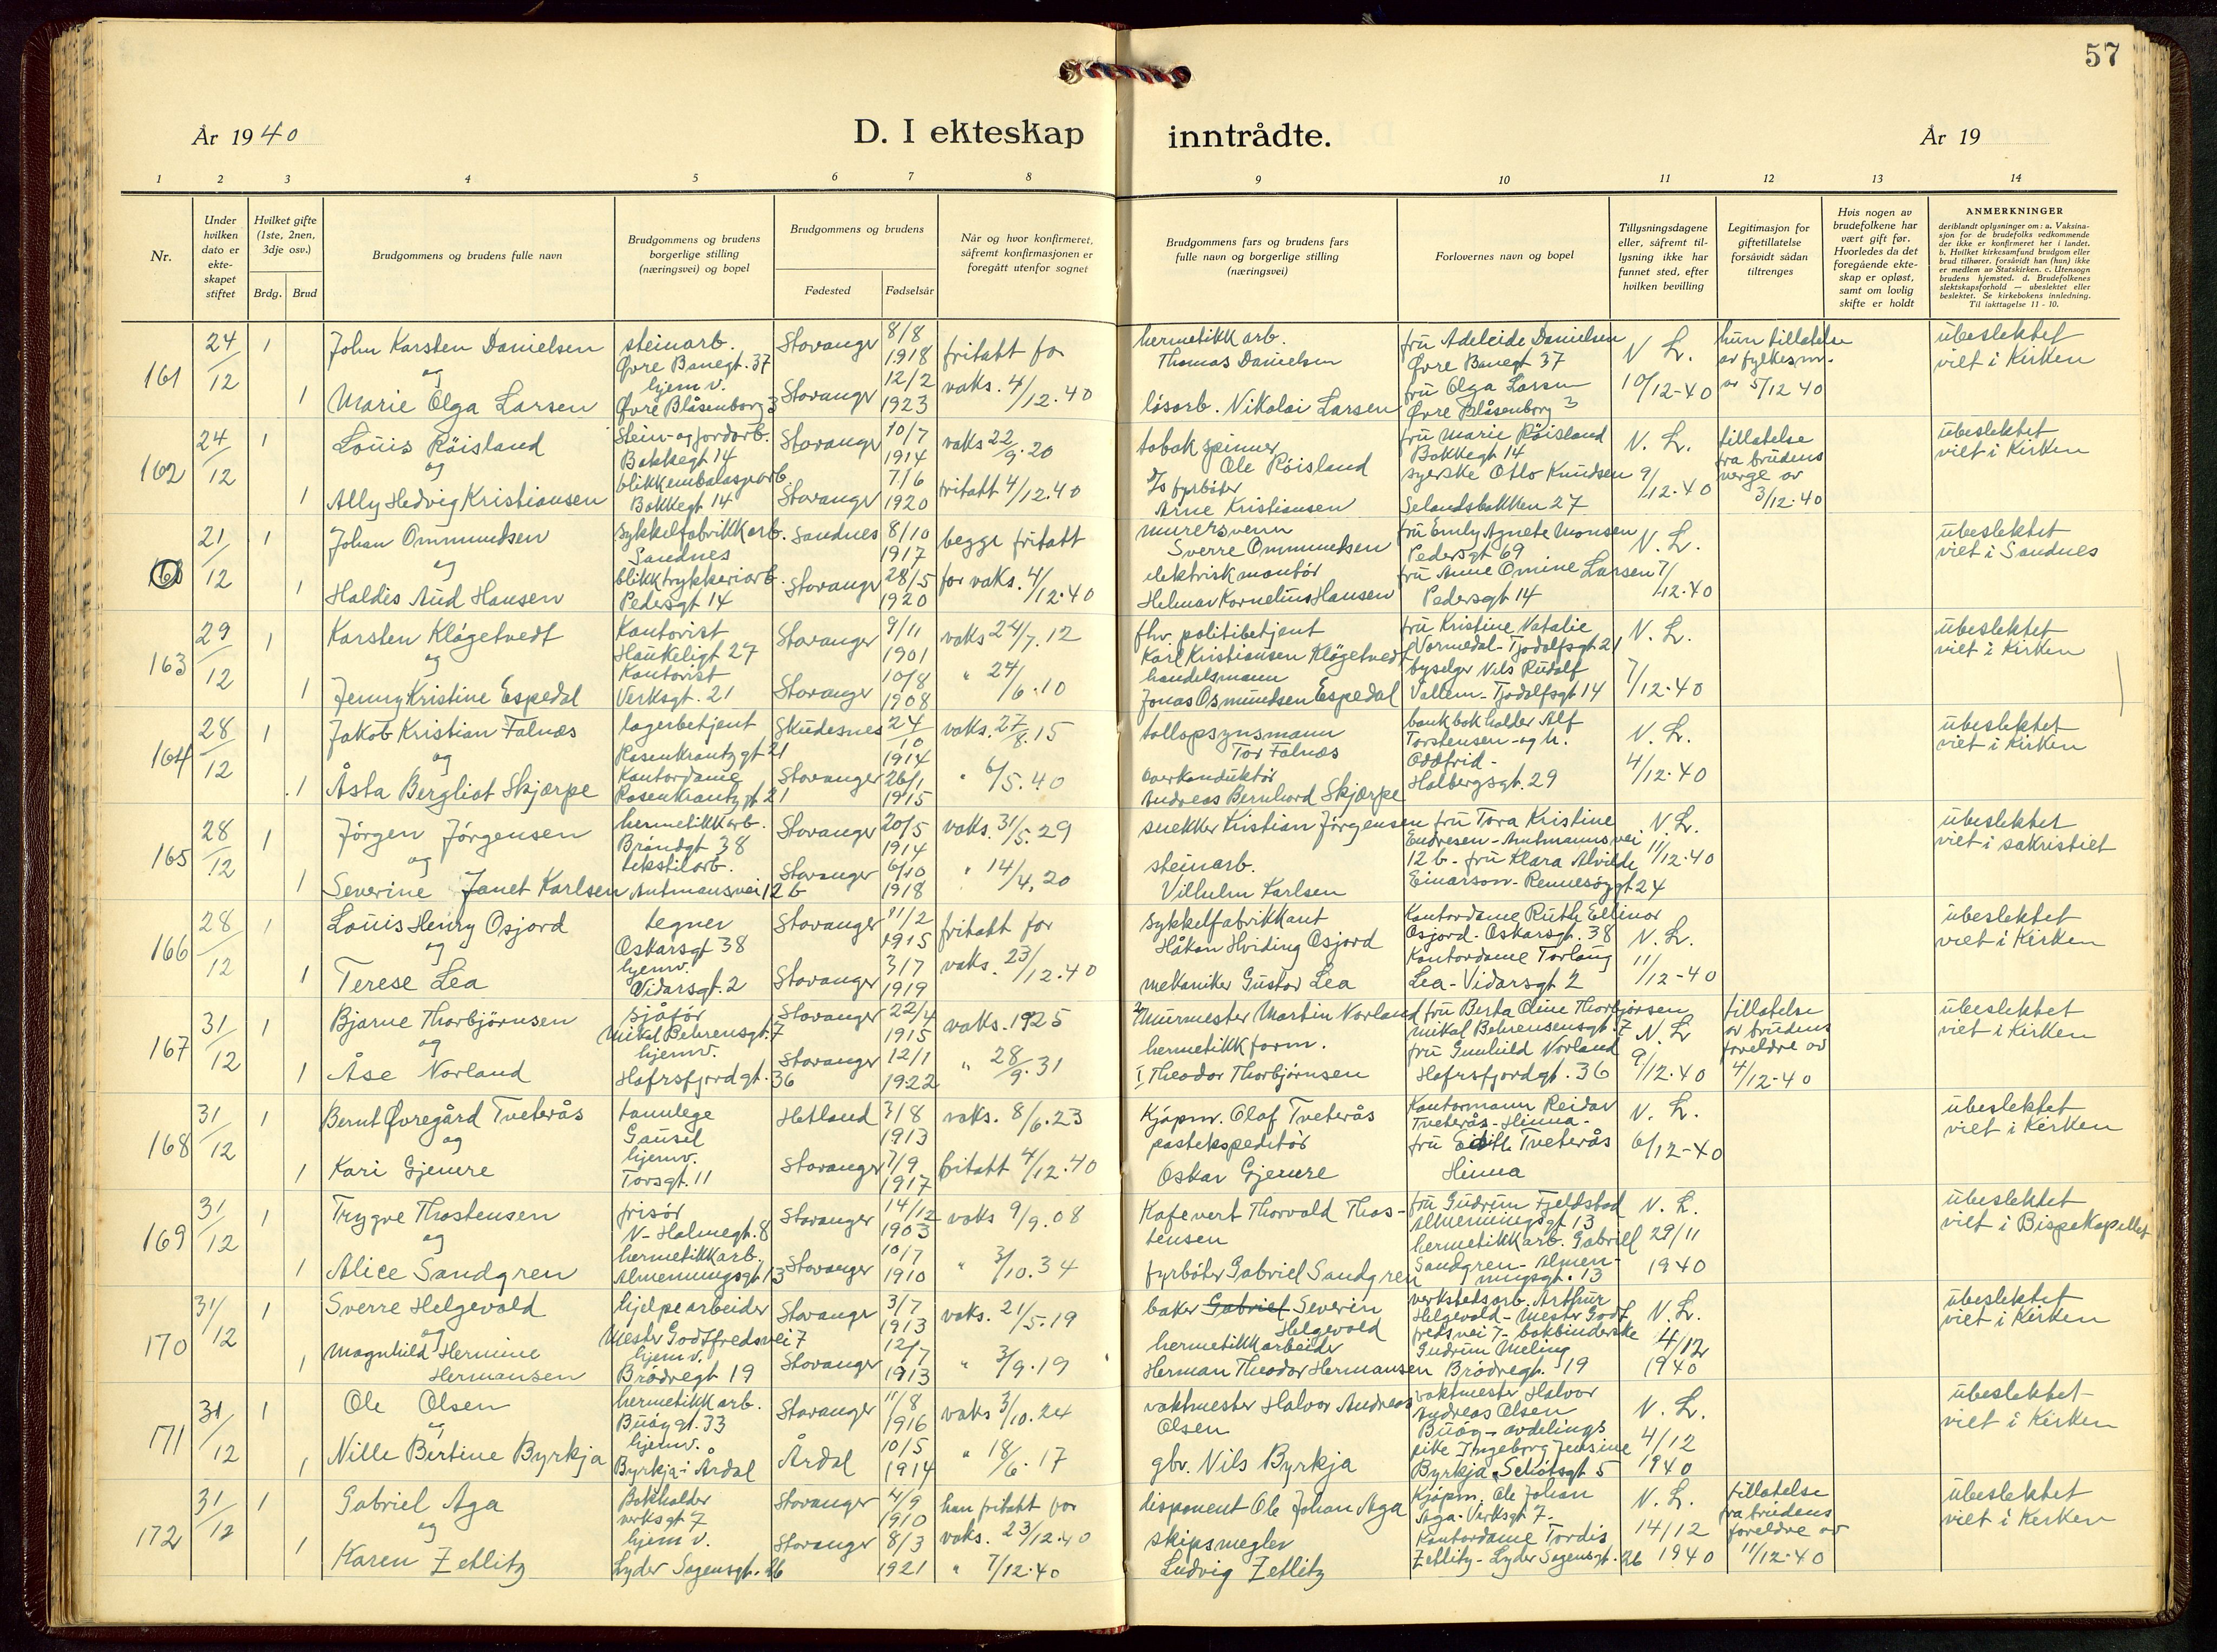 57
År 1940
D. I ekteskap inntrådte.
År 19
1 2 3 4 5 6 7 8 9 10 11 12 13 14
Nr.
Under hvilken dato er ekteskapet stiftet
Hvilket gifte (1ste, 2nen, 3dje osv.)
Brdg. Brud
Brudgommens og brudens fulle navn
Brudgommens og brudens borgerlige stilling (næringsvei) og bopel
Brudgommens og brudens
Fødested Fødselsår
Når og hvor konfirmeret, såfremt konfirmasjonen er foregått utenfor sognet
Brudgommens fars og brudens fars fulle navn og borgerlige stilling (næringsvei)
Forlovernes navn og bopel
Tillysningsdagene eller, såfremt tillysning ikke har funnet sted, efter hvilken bevilling
Legitimasjon for giftetillatelse forsåvidt sådan tiltrenges
Hvis nogen av brudefolkene har vært gift før. Hvorledes da det foregående ekteskap er opløst, samt om lovlig skifte er holdt
ANMERKNINGER
deriblandt oplysninger om: a. Vaksinasjon for de brudefolks vedkommende der ikke er konfirmeret her i landet. b. Hvilket kirkesamfund brudgom eller brud tilhører, forsåvidt han (hun) ikke er medlem av Statskirken. c. Utensogn brudens hjemsted. d. Brudefolkenes slektskapsforhold — ubeslektet eller beslektet. Se kirkebokens innledning. Til iakttagelse 11 - 10.
161 24/12 1 John Karsten Danielsen steinarb. Øvre Banegt. 37 Stavanger 8/8 1918 fritatt for
og
1 Marie Olga Larsen hjemv. Øvre Blåsenborg 3 Stavanger 12/2 1923 vaks. 4/12.40
hermetikkarb. Thomas Danielsen
løsarb. Nikolai Larsen
fru Adeleide Danielsen Øvre Banegt 37
fru Olga Larsen Øvre Blåsenborg 3
N. L. 10/12-40
hun tillatelse av fylkesm. av 5/12 40
ubeslektet viet i Kirken
162 24/12 1 Louis Röisland Stein- og jordarb. Bakkegt 14 Stavanger 10/7 1914 vaks 22/9.20
og
1 Ally Hedvig Kristiansen blikkemballasjearb. Bakkegt 14 Stavanger 7/6 1920 fritatt 4/12.40
tobakspinner Ole Röisland
fyrböter Arne Kristiansen
fru Marie Röisland Bakkegt 14
syerske Otlo Knudsen Selandsbakken 27
N. L. 9/12.40
tillatelse fra brudens verge av 3/12.40
ubeslektet viet i Kirken
21/12 1 Johan Ommundsen sykkelfabrikkarb. Sandnes Sandnes 8/10 1917 begge fritatt
og
1 Haldis Aud Hansen blikktrykkeriarb. Pedersgt 14 Stavanger 28/5 1920 for vaks. 4/12.40
murersvenn Sverre Ommundsen
elektriskmontör Helmar Kornelius Hansen
fru Emly Agnete Monsen Pedersgt 69
fru Anne Omine Larsen Pedersgt 14
N. L. 7/12.40
ubeslektet viet i Sandnes
163 29/12 1 Karsten Klögetvedt Kontorist Haukeligt 27 Stavanger 9/11 1901 vaks 24/7.12
og
1 Jenny Kristine Espedal Kontorist Verksgt. 21 Stavanger 10/8 1908 " 24/6.10
fhv. politibetjent Karl Kristiansen Klögetvedt
handelsmann Jonas Osmundsen Espedal
fru Kristine Natalie Vormedal - Tjodolfsgt 21
byselger Nils Rudolf Vallem - Tjodolfsgt 14
N. L. 7/12.40
ubeslektet viet i Kirken
164 28/12 1 Jakob Kristian Falnes lagerbetjent Rosenkrantzgt 21 Skudesnes 24/10 1914 vaks. 27/8.15
og
1 Åsta Bergliot Skjærpe Kontordame Rosenkrantzgt 21 Stavanger 26/1 1915 " 6/5.40
tollopsynsmann Tor Falnes
overkonduktör Andreas Bernhard Skjærpe
bankbokholder Alf Torstensen - og h. Oddfrid - Holbergsgt. 29
N. L. 4/12.40
ubeslektet viet i Kirken
165 28/12 1 Jörgen Jörgensen hermetikkarb. Bröndgt 38 Stavanger 20/5 1914 vaks. 31/5.29
og
1 Severine Janet Karlsen tekstilarb. Amtmansvei 12 b Stavanger 6/10 1918 " 14/4.20
snekker Kristian Jörgensen
steinarb. Vilhelm Karlsen
fru Tora Kristine Endresen - Amtmannsvei 12 b. - fru Klara Alvilde Einarson - Rennesöygt 24
N. L. 11/12.40
ubeslektet viet i sakristiet
166 28/12 1 Louis Henry Osjord tegner Oskarsgt 38 Stavanger 11/2 1915 fritatt for
og
1 Terese Lea hjemv. Vidarsgt. 2 Stavanger 3/7 1919 vaks. 23/12.40
sykkelfabrikkant Håkon Hviding Osjord
mekaniker Gustav Lea
Kontordame Ruth Ellinor Osjord - Oskarsgt. 38
Kontordame Torlaug Lea - Vidarsgt 2
N. L. 11/12-40
ubeslektet viet i Kirken
167 31/12 1 Bjarne Thorbjörnsen sjåför Mikal Behrensgt. 7 Stavanger 22/4 1915 vaks. 1925
og
1 Åse Norland hjemv. Hafrsfjordgt. 36 Stavanger 12/1 1922 " 28/9.31
2 Murmester Martin Norland
hermetikkform. 1, Theodor Thorbjörnsen
fru Berta Oline Thorbjörsen Mikal Behrensensgt. 7
fru Gunhild Norland Hafrsfjordgt. 36
N. L 9/12.40
tillatelse av brudens foreldre av 4/12-40
ubeslektet viet i Kirken
168 31/12 1 Bernt Øvregård Tveterås tannlege Gausel Hetland 3/8 1913 vaks. 8/6.23
og
1 Kari Gjemre hjemv. Torsgt. 11 Stavanger 7/9 1917 fritatt 4/12.40
Kjöpm. Olaf Tveterås
postekspeditör Oskar Gjemre
Kontormann Reidar Tveterås - Hinna -
fru Edith Tveterås Hinna
N. L. 6/12-40
ubeslektet viet i Kirken
169 31/12 1 Trygve Thostensen frisör N- Holmegt. 8 Stavanger 14/12 1903 vaks 9/9.08
og
1 Alice Sandgren hermetikkarb. Almenningsgt 13 Stavanger 10/7 1910 " 3/10.34
Kafevert Thorvald Thostensen
fyrböter Gabriel Sandgren
fru Gudrun Fjeldstad Almenningsgt 13
hermetikkarb. Gabriel Sandgren - Almenningsgt. 13
N. L. 29/11 1940
ubeslektet viet i Bispekapellet
170 31/12 1 Sverre Helgevold hjelpearbeider Mester Godtfredsvei 7 Stavanger 3/7 1913 vaks. 21/5.19
og
1 Magnhild Hermine Hermansen hjemv. Brödregt 19 Stavanger 12/7 1913 " 3/9.19
baker Gabriel Severin Helgevold
hermetikkarbeider Herman Theodor Hermansen
verkstedsarb. Arthur Helgevold - Mester Godtfredsvei 7 - bokbinderske Gudrun Meling Brödregt. 19
N. L. 4/12 1940
ubeslektet viet i Kirken
171 31/12 1 Ole Olsen hermetikkarb. Buöygt. 33 Stavanger 11/8 1916 vaks 3/10.24
og
1 Nille Bertine Byrkja hjemv. Byrkja i Årdal Årdal 10/5 1914 " 18/6.17
vaktmester Halvor Andreas Olsen
gbr. Nils Byrkja
vaktmester Halvor Andreas Olsen Buöy - avdelings pike Ingeborg Jensine Byrkja Schötsgt 5
N. L. 4/12 1940
ubeslektet viet i Kirken
172 31/12 1 Gabriel Aga Bokholder verksgt 7 Stavanger 4/9 1910 han fritatt for vaks. 23/12.40
og
1 Karen Zetlitz hjemv. Lyder Sagensgt. 26 Stavanger 8/3 1921 " 7/12.40
disponent Ole Johan Aga
skipsmegler Ludvig Zetlitz
Kjöpm. Ole Johan Aga - Verksgt 7 -
Kontordame Tordis Zetlitz - Lyder Sagensgt. 26
N. L. 14/12 1940
tillatelse fra brudens foreldre av 11/12.40
ubeslektet viet i Kirken